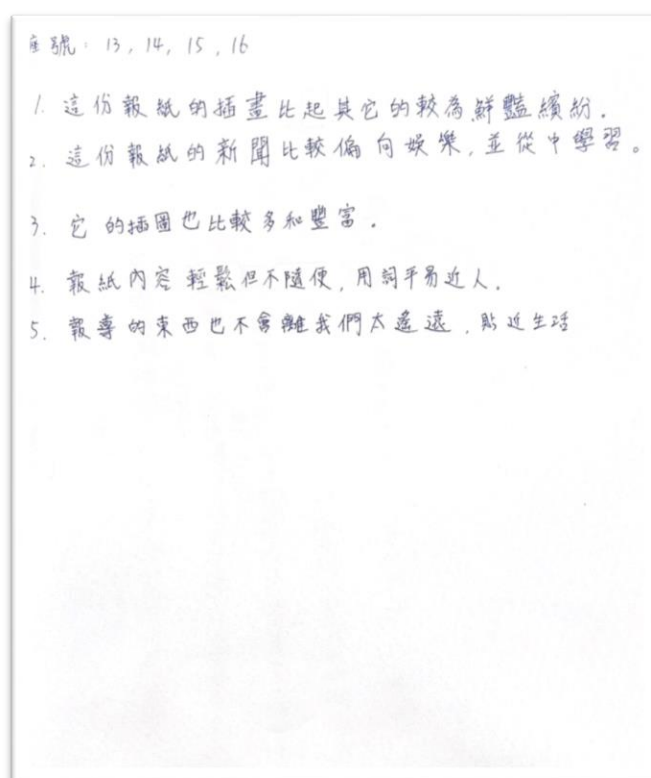 座號: 13, 14, 15, 16
1. 這份報紙的插畫比起其它的較為鮮豔繽紛.
2. 這份報紙的新聞比較偏向娛樂, 並從中學習。
3. 它的插圖也比較多和豐富.
4. 報紙內容輕鬆但不隨便, 用詞平易近人.
5. 報導的東西也不會離我們太遙遠, 貼近生活